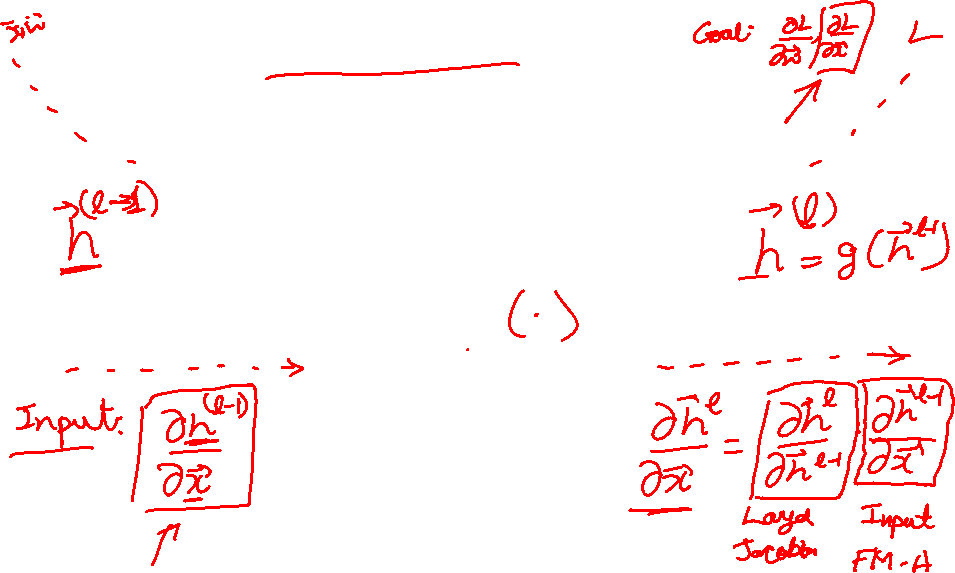 Goal: ∂L/∂w⃗, ∂L/∂x⃗ L
h⃗^(l-1)
h⃗^(l) = g(h⃗^l-1)
(·)
Input: ∂h^(l-1)/∂x⃗
∂h⃗^l/∂x⃗ = ∂h⃗^l/∂h⃗^l-1 · ∂h⃗^l-1/∂x⃗
Layer Input
Jacobian FM-A